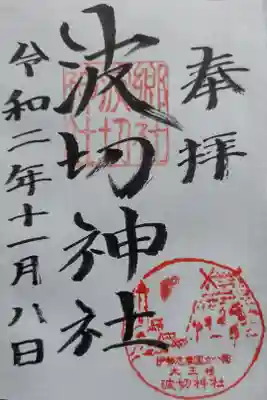 奉拝
波切神社
令和二年十一月八日
伊勢志摩国立公園
大王崎
波切神社